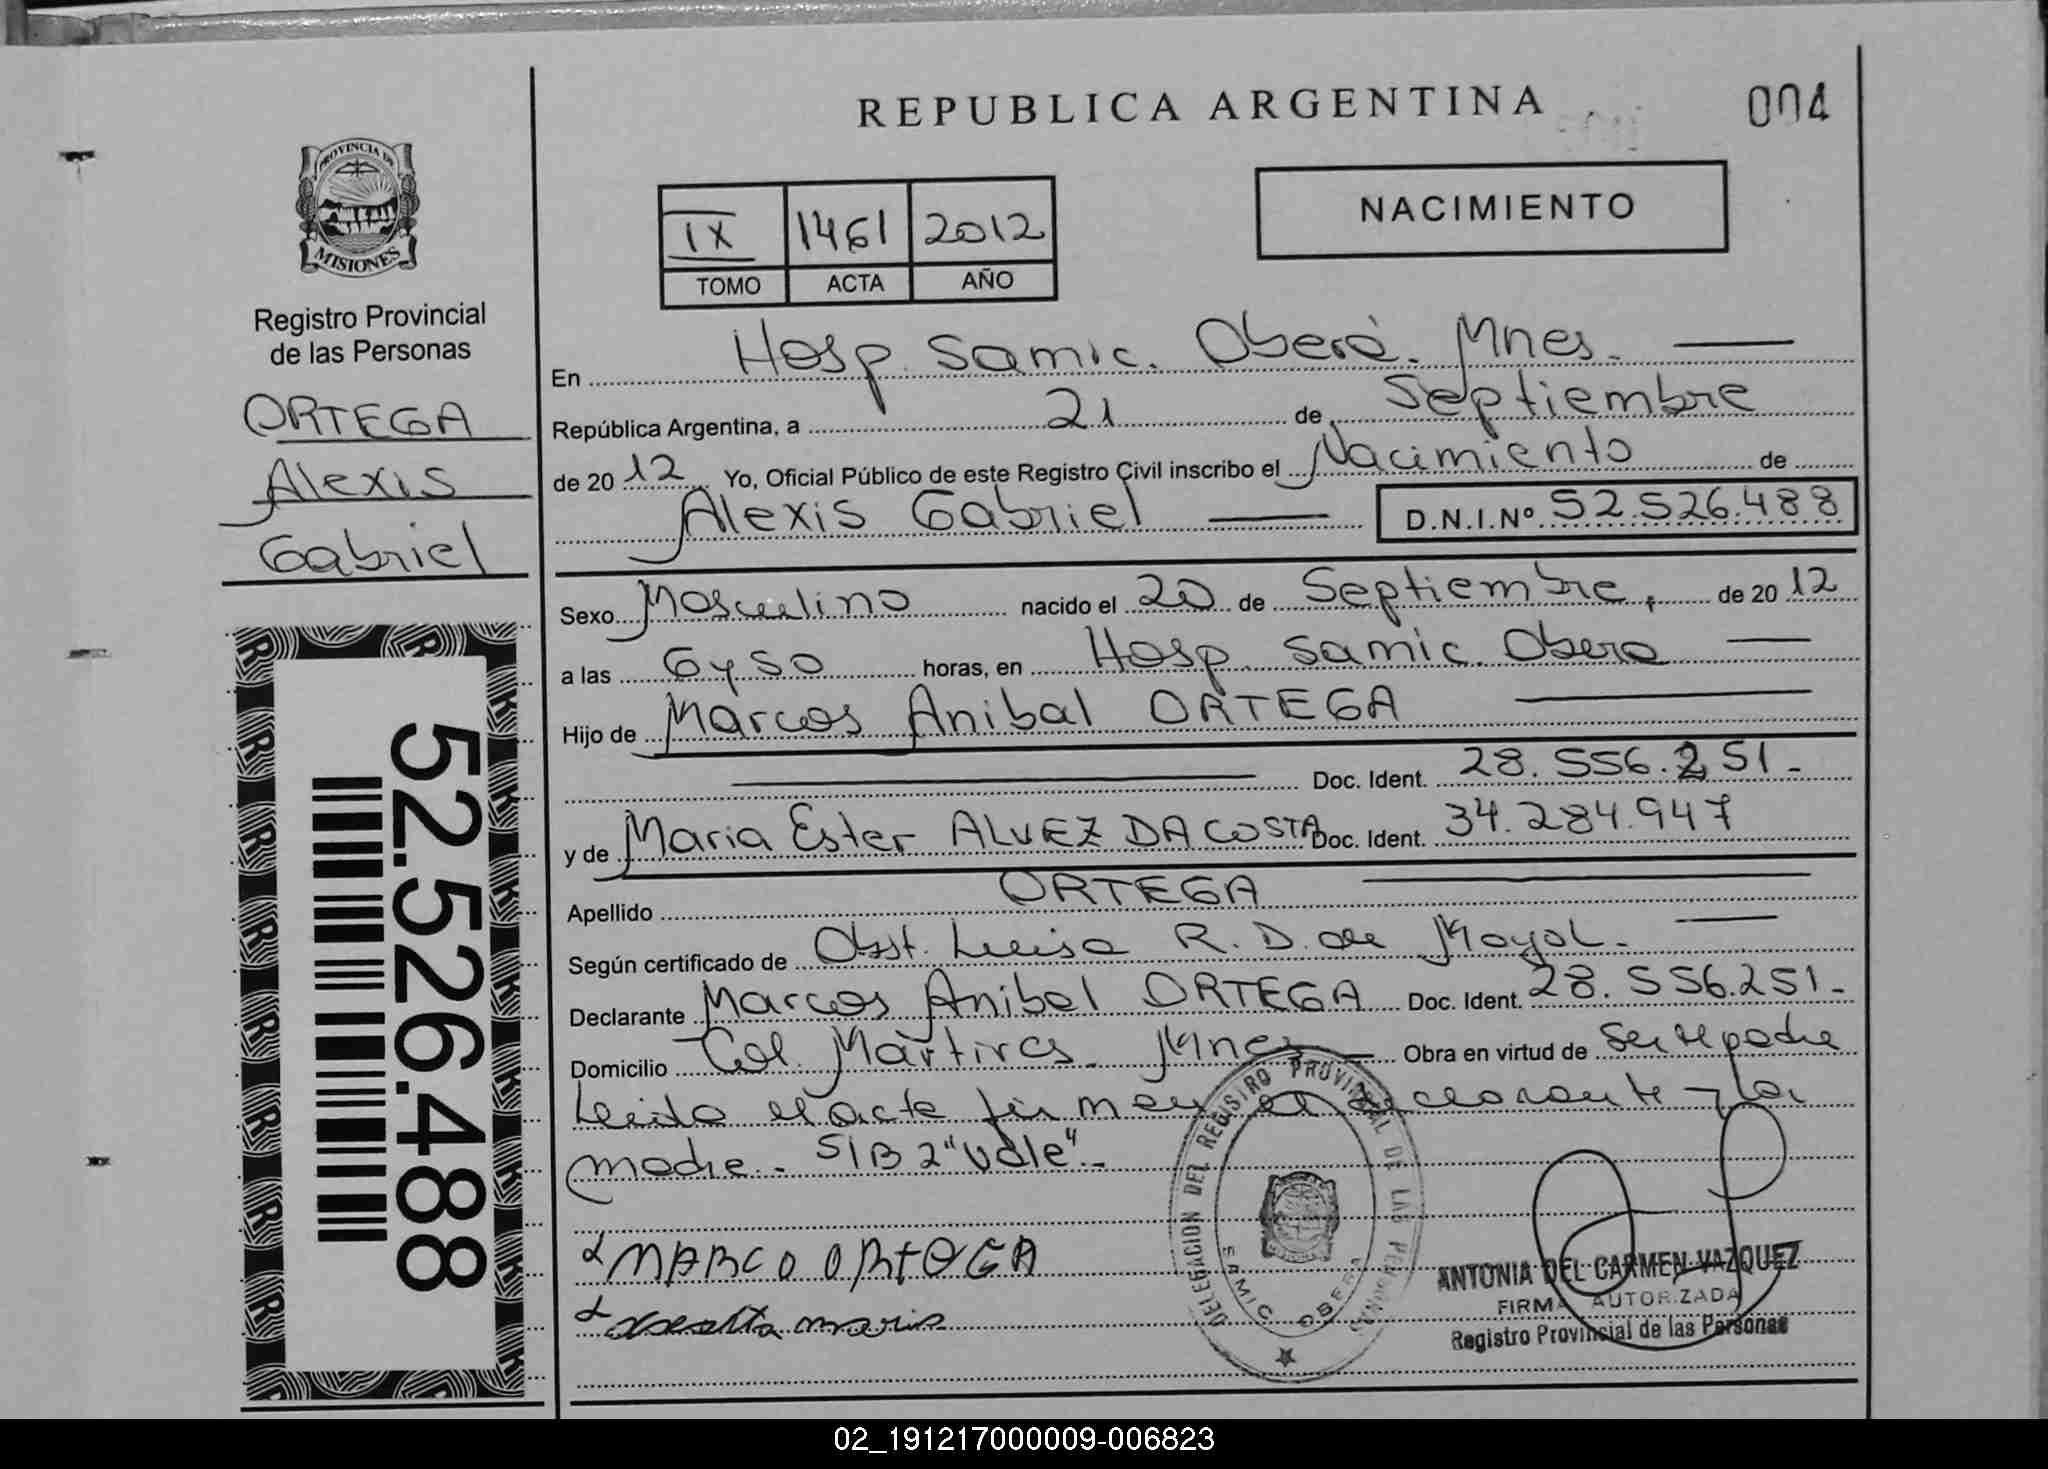 REPUBLICA ARGENTINA
004
PROVINCIA DE
MISIONES
Registro Provincial
de las Personas
ORTEGA
Alexis
Gabriel
52.526.488
NACIMIENTO
IX 1461 2012
TOMO ACTA AÑO
En Hosp. Samic. Oberá. Mnes.
República Argentina, a 21 de Septiembre
de 2012 Yo, Oficial Público de este Registro Civil inscribo el Nacimiento de
Alexis Gabriel D.N.I.Nº 52.526.488
Sexo Masculino nacido el 20 de Septiembre, de 2012
a las 6 y 50 horas, en Hosp. Samic. Obera
Hijo de Marcos Anibal ORTEGA
Doc. Ident. 28.556.251.-
y de Maria Ester ALVEZ DA COSTA Doc. Ident. 34.284.947
Apellido ORTEGA
Según certificado de Obst. Luisa R. D. de Moyol.-
Declarante Marcos Anibal ORTEGA Doc. Ident. 28.556.251.-
Domicilio Col. Mártires. Mnes Obra en virtud de ser el padre
Leida el acta firman el declarante y la
madre.- S/B 2 "Vale".-
MARCO ORTEGA
DELEGACION DEL REGISTRO PROVINCIAL DE LAS PERSONAS
SAMIC OBERA
ANTONIA DEL CARMEN VAZQUEZ
FIRMA AUTORIZADA
Registro Provincial de las Personas
02_191217000009-006823